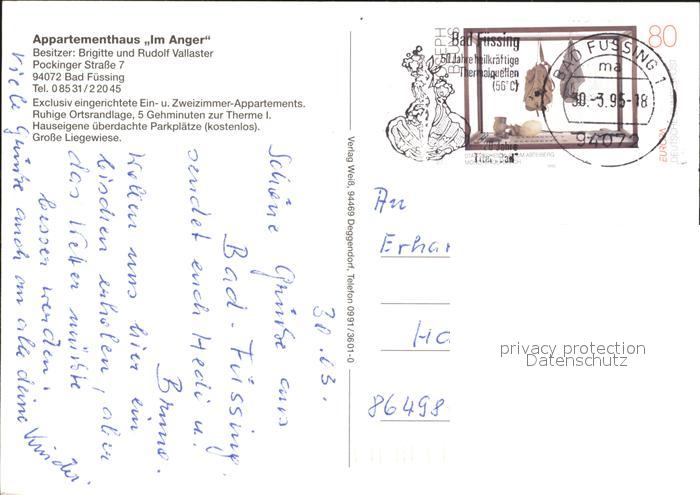 Appartementhaus „Im Anger“
Besitzer: Brigitte und Rudolf Vallaster
Pockinger Straße 7
94072 Bad Füssing
Tel. 0 85 31 / 2 20 45
Exclusiv eingerichtete Ein- u. Zweizimmer-Appartements.
Ruhige Ortsrandlage, 5 Gehminuten zur Therme I.
Hauseigene überdachte Parkplätze (kostenlos).
Große Liegewiese.
30.03.
Schöne Grüße aus
Bad-Füssing
sendet euch Hedi u.
Bruno.
Wollen uns hier ein
bischen erholen, aber
das Wetter müßte
besser werden.
Viele Grüße auch an alle deine Kinder.
Verlag Weiß, 94469 Deggendorf, Telefon 0991/3601-0
Bad Füssing
50 Jahre heilkräftige
Thermalquellen
(56°C)
JOSEPH
BEUYS
80
EUROPA
DEUTSCHE BUNDESPOST
BAD FÜSSING 1
ma
30.-3.95-18
94072
An
Erhar
Ha
86498
privacy protection
Datenschutz